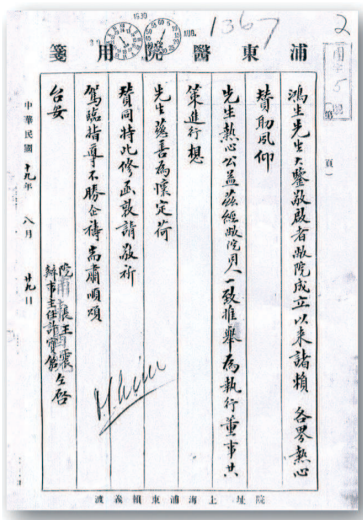 1367
2
浦東醫院用箋
第
頁
鴻生先生大鑒敬啟者敝院成立以來諸賴 各界熱心
贊助夙仰
先生熱心公益茲經敝院同人一致推舉為執行董事共
策進行想
先生蘊善為懷定荷
贊同特此修函敦請敬祈
駕臨指導不勝企禱耑肅順頌
台安
院長王
辦事主任許
仝啟
中華民國十九年八月廿九日
院址上海浦東賴義渡